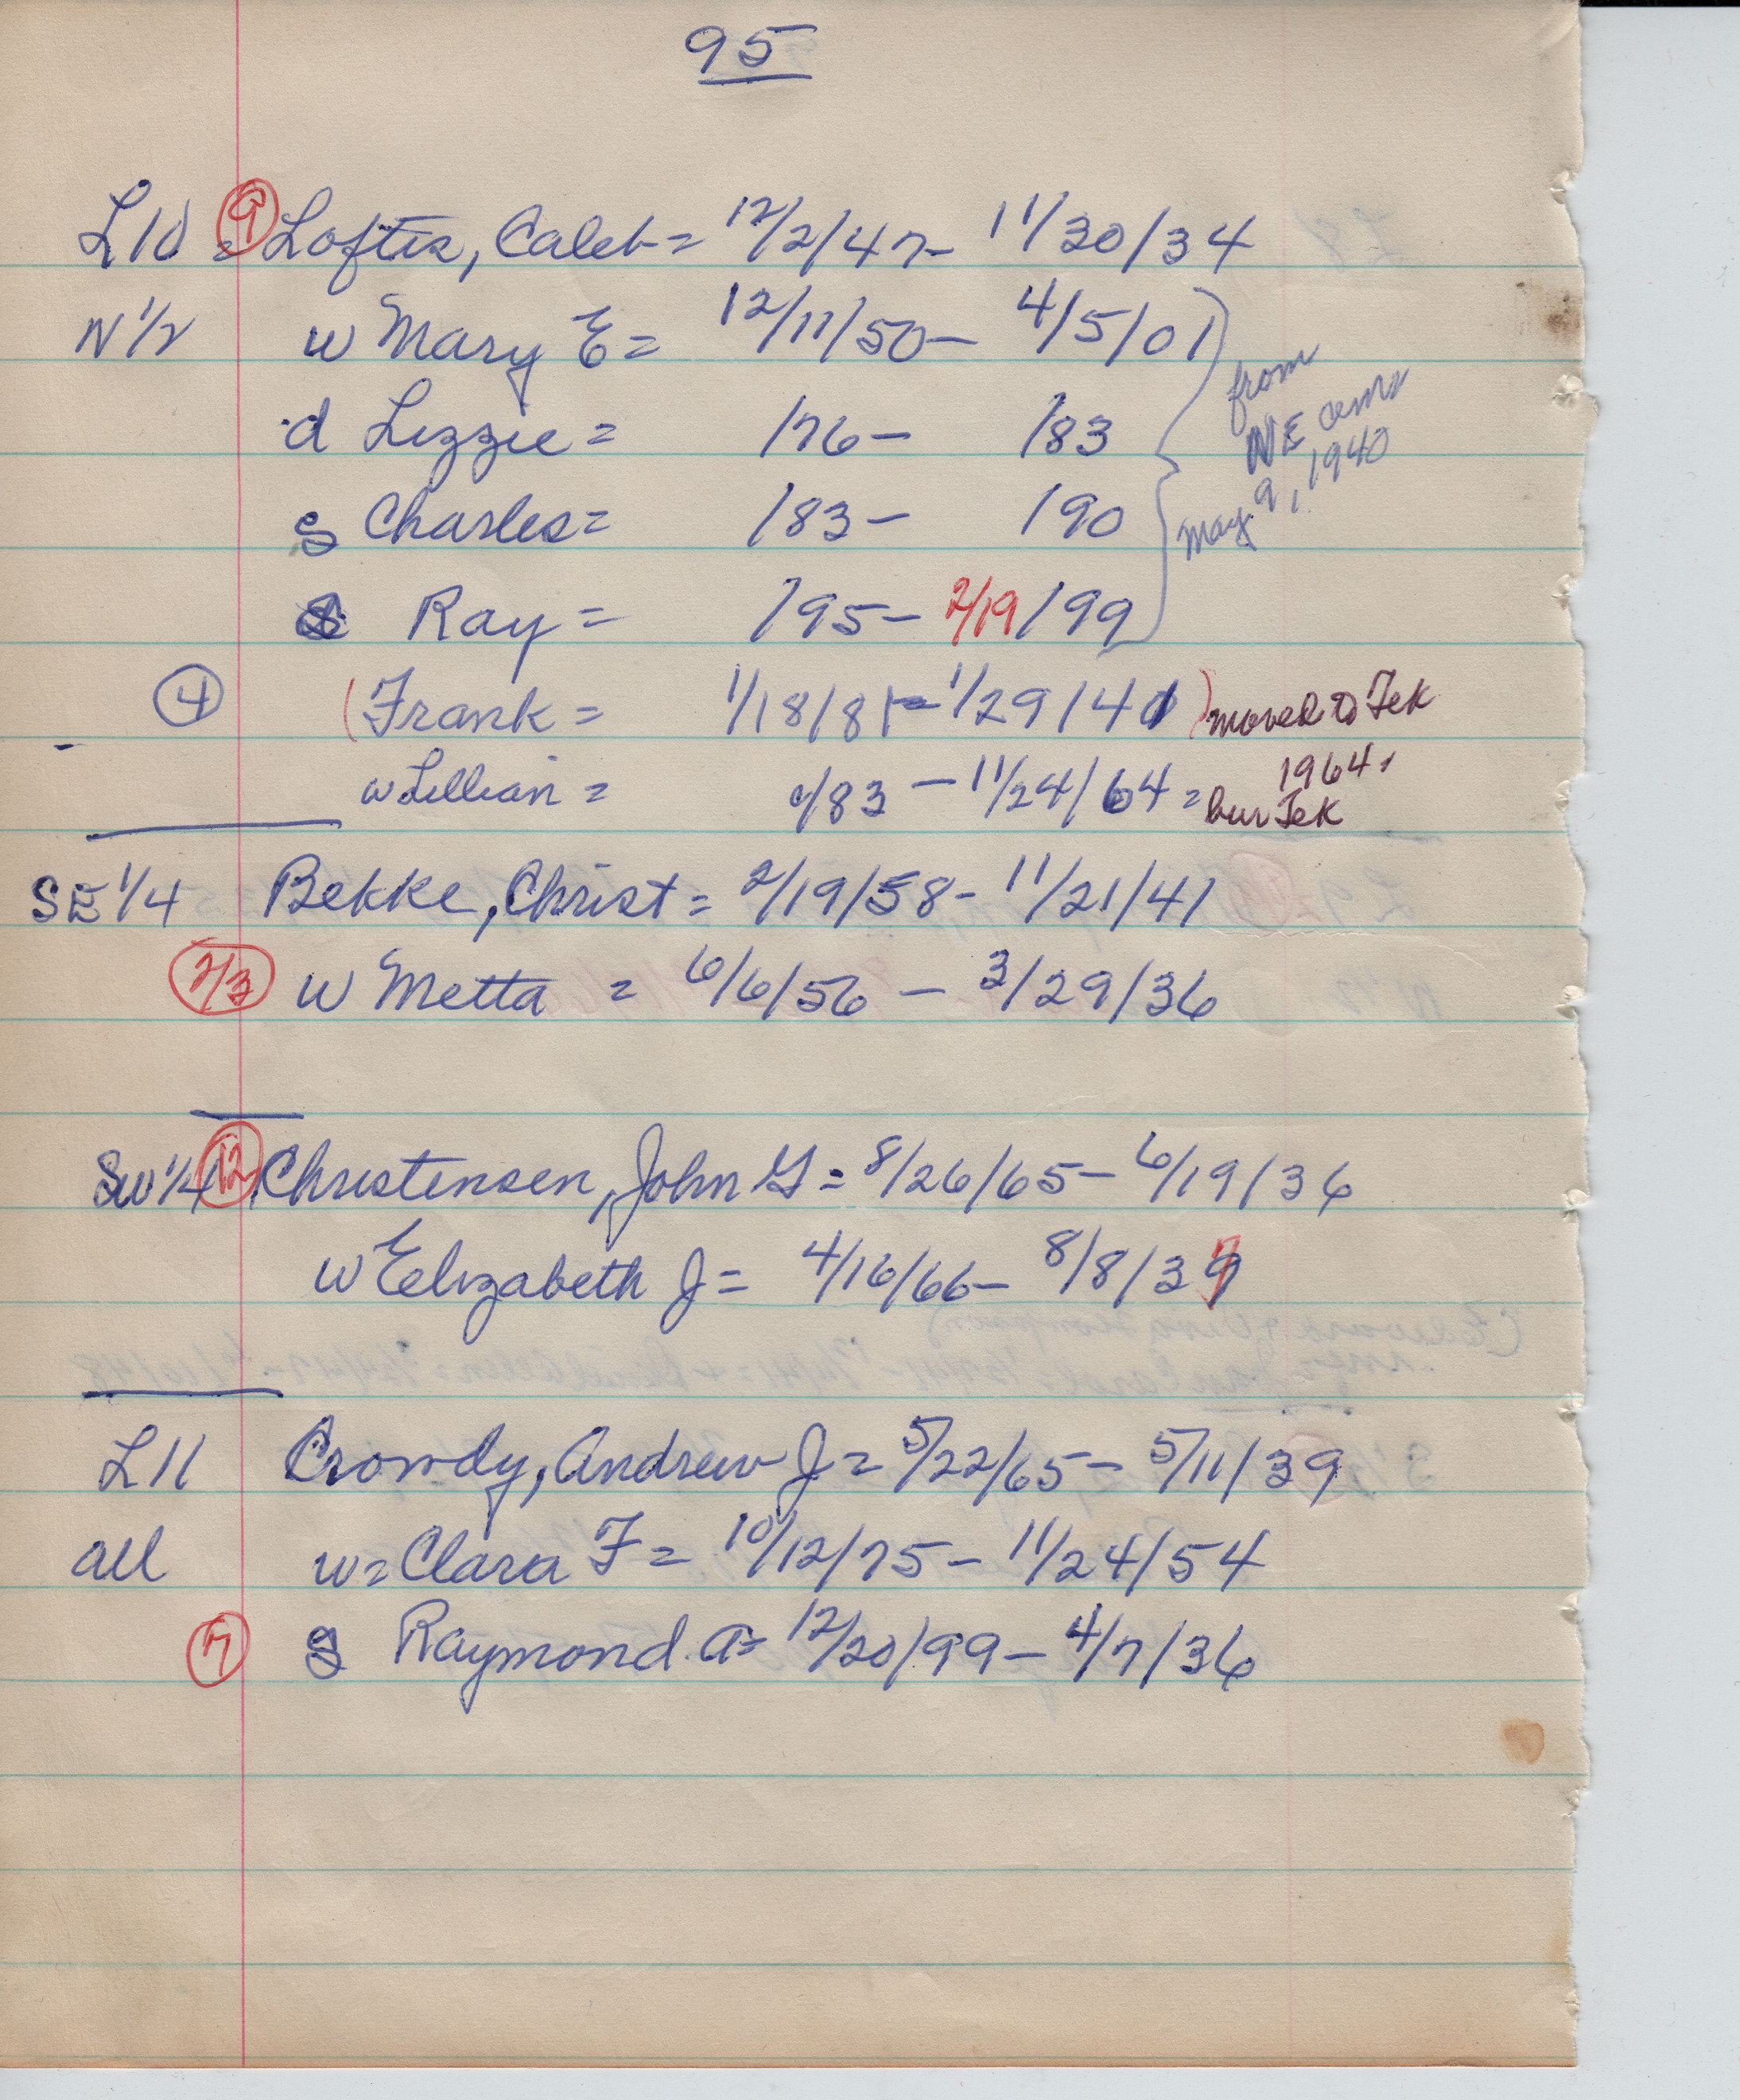 95
L10 = 9 Loftis, Caleb = 12/2/47 - 11/30/34
N 1/2 w Mary E = 12/11/50 - 4/5/01
d Lizzie = /76 - /83
s Charles = /83 - /90
from NE cem May 9, 1940
s Ray = /95 - 2/19/99
4 (Frank = 1/18/81 - 1/29/40) moved to Tek 1964.
w Lillian = /83 - 11/24/64 = bur Tek
SE 1/4 Bekke, Christ = 2/19/58 - 11/21/41
2/3 w Metta = 6/6/56 - 3/29/36
SW 1/4 12 Christensen, John G = 8/26/65 - 6/19/36
w Elizabeth J = 4/16/66 - 8/8/39
L11 Crowdy, Andrew J = 5/22/65 - 5/11/39
all w = Clara F = 10/12/75 - 11/24/54
7 s Raymond A = 12/20/99 - 4/7/36